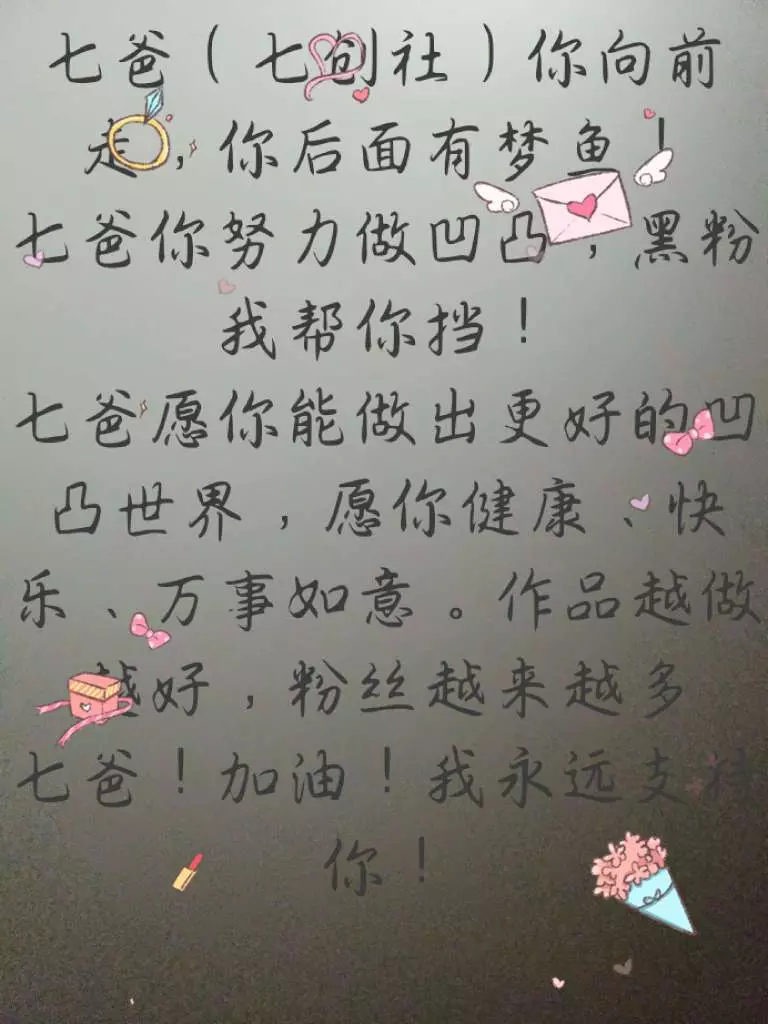 七爸（七创社）你向前
走，你后面有梦鱼！
七爸你努力做凹凸，黑粉
我帮你挡！
七爸愿你能做出更好的凹
凸世界，愿你健康、快
乐、万事如意。作品越做
越好，粉丝越来越多
七爸！加油！我永远支持
你！